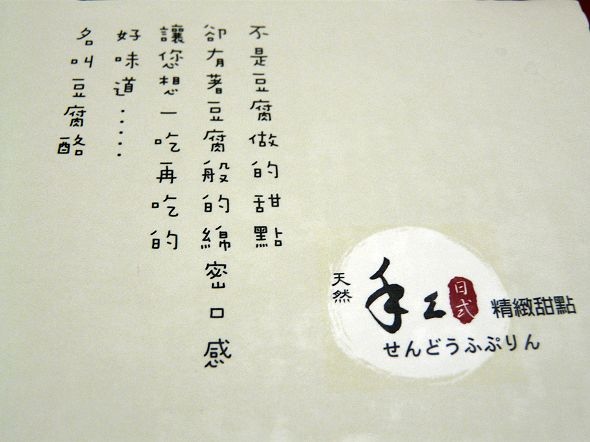 不是豆腐做的甜點
卻有著豆腐般的綿密口感
讓您想一吃再吃的
好味道‥‥‥
名叫豆腐酪
天然
手工
日式
精緻甜點
せんどうふぷりん